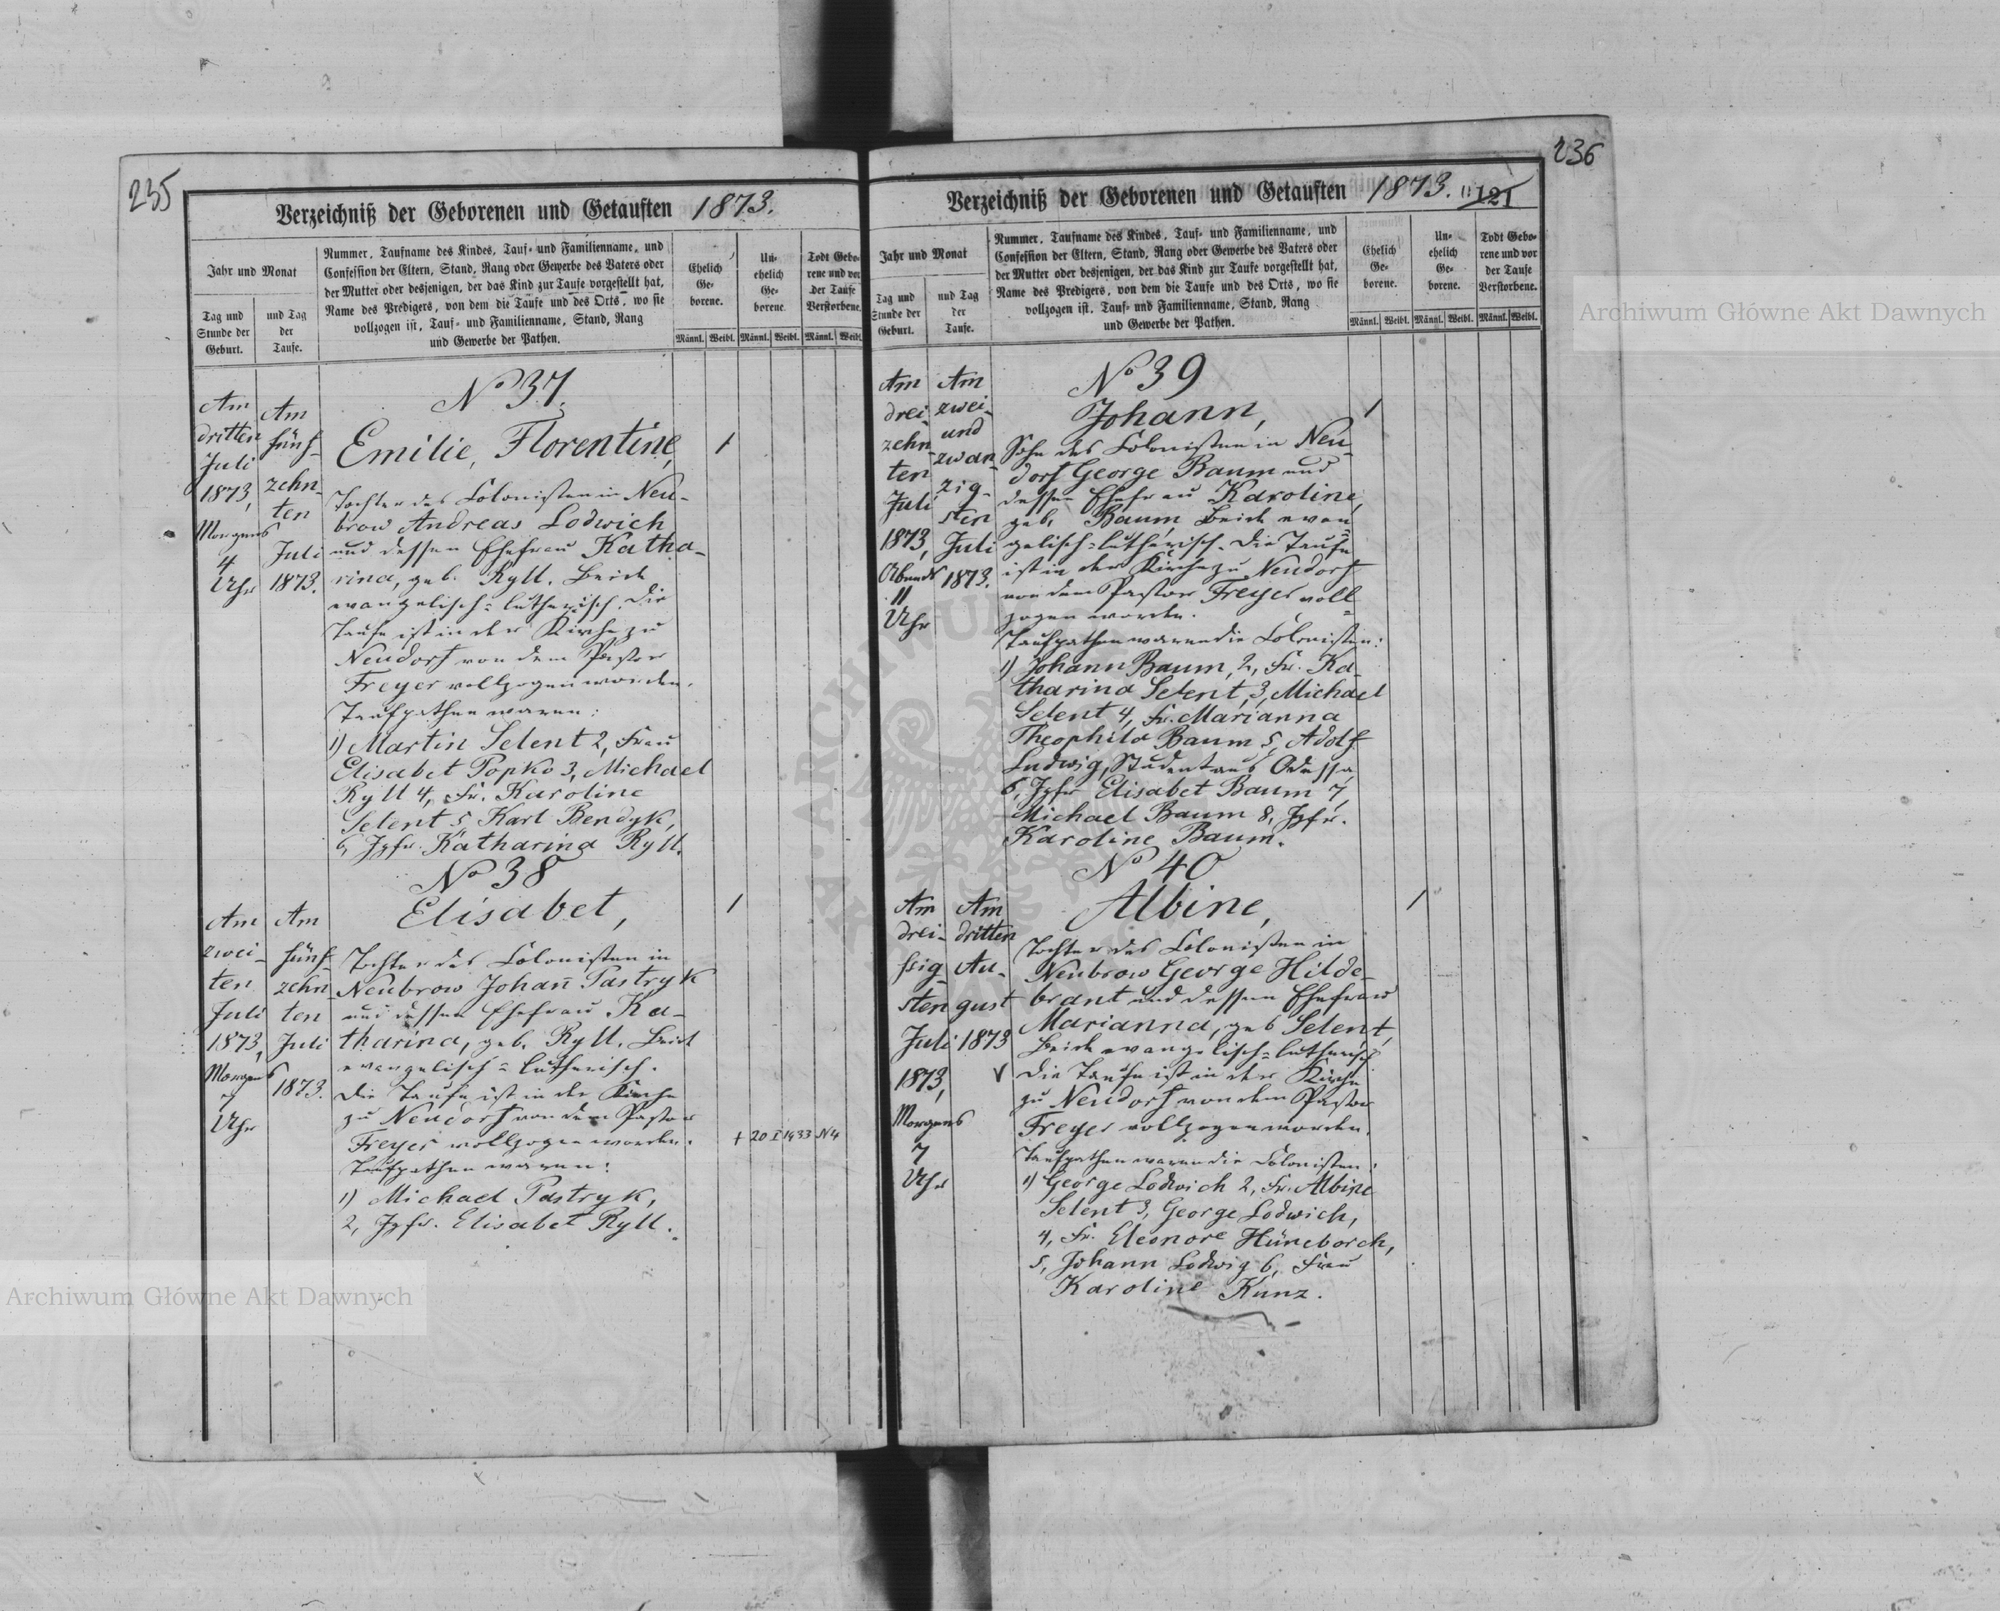 235
Verzeichniß der Geborenen und Getauften 1873.
Jahr und Monat
Tag und Stunde der Geburt.
und Tag der Taufe.
Nummer, Taufname des Kindes, Tauf- und Familienname, und
Confession der Eltern, Stand, Rang oder Gewerbe des Vaters oder
der Mutter oder desjenigen, der das Kind zur Taufe vorgestellt hat,
Name des Predigers, von dem die Taufe und des Orts, wo sie
vollzogen ist, Tauf- und Familienname, Stand, Rang
und Gewerbe der Pathen.
Ehelich Ge-borene.
Un-ehelich Ge-borene
Todt Gebo-rene und vor der Taufe Verstorbene.
Männl. Weibl. Männl. Weibl. Männl. Weibl.
Am
dritten
Juli
1873,
Morgens
4
Uhr
Am
fünf-
zehn-
ten
Juli
1873.
No 37.
Emilie, Florentine,
Tochter des Colonisten in Neu-
brow Andreas Lodwich
und dessen Ehefrau Katha-
rina, geb. Ryll. Beide
evangelisch-lutherisch. Die
Taufe ist in der Kirche zu
Neudorf von dem Pastor
Freyer vollzogen worden.
Taufpathen waren:
1) Martin Selent 2, Frau
Elisabet Popko 3, Michael
Ryll 4, Fr. Karoline
Selent 5 Karl Bendyk,
6, Jgfr. Katharina Ryll.
Am
zwei-
ten
Juli
1873,
Morgens
Uhr
Am
fünf-
zehn-
ten
Juli
1873.
No 38
Elisabet,
Tochter des Colonisten in
Neubrow Johann Pastryk
und dessen Ehefrau Ka-
tharina, geb. Ryll. Beide
evangelisch-lutherisch.
Die Taufe ist in der Kirche
zu Neudorf von dem Pastor
Freyer vollzogen worden.
Taufpathen waren:
1) Michael Pastryk,
2, Jgfr. Elisabet Ryll.
+ 20 I 1933 N4
236
Verzeichniß der Geborenen und Getauften 1873.
121
Jahr und Monat
Tag und Stunde der Geburt.
und Tag der Taufe.
Nummer, Taufname des Kindes, Tauf- und Familienname, und
Confession der Eltern, Stand, Rang oder Gewerbe des Vaters oder
der Mutter oder desjenigen, der das Kind zur Taufe vorgestellt hat,
Name des Predigers, von dem die Taufe und des Orts, wo sie
vollzogen ist, Tauf- und Familienname, Stand, Rang
und Gewerbe der Pathen.
Ehelich Ge-borene.
Un-ehelich Ge-borene.
Todt Gebo-rene und vor der Taufe Verstorbene.
Männl. Weibl. Männl. Weibl. Männl. Weibl.
Am
drei-
zehn-
ten
Juli
1873,
Abends
11
Uhr
Am
zwei-
und
zwan-
zig-
sten
Juli
1873.
No 39
Johann,
Sohn des Colonisten in Neu-
dorf George Baum und
dessen Ehefrau Karoline,
geb. Baum Beide evan-
gelisch-lutherisch. Die Taufe
ist in der Kirche zu Neudorf
von dem Pastor Freyer voll-
zogen worden.
Taufpathen waren die Colonisten:
1) Johann Baum, 2, Fr. Ka-
tharina Selent, 3, Michael
Selent 4, Fr. Marianna
Theophila Baum 5, Adolf
Ludwig, Student aus Odessa,
6, Jgfr Elisabet Baum 7,
Michael Baum 8, Jgfr.
Karoline Baum.
Am
drei-
ßig-
sten
Juli
1873,
Morgens
7
Uhr
Am
dritten
Au-
gust
1873
No 40
Albine,
Tochter des Colonisten in
Neubrow George Hilde-
brant und dessen Ehefrau
Marianna, geb Selent,
Beide evangelisch-lutherisch
Die Taufe ist in der Kirche
zu Neudorf von dem Pastor
Freyer vollzogen worden.
Taufpathen waren die Colonisten:
1) George Lodwich 2, Fr. Albine
Selent 3, George Lodwich,
4, Fr. Eleonore Hüneborch,
5, Johann Lodwig 6, Frau
Karoline Kunz.
Archiwum Główne Akt Dawnych
Archiwum Główne Akt Dawnych